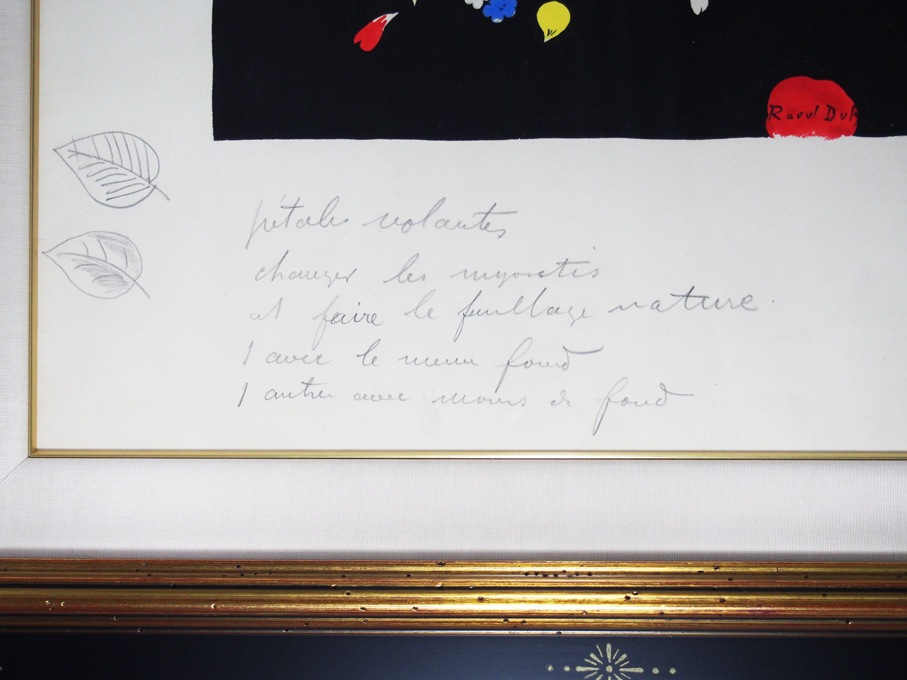 Raoul Duf
pétales volantes
changer les myosotis
et faire le feuillage nature.
1 avec le meme fond
1 autre avec moins de fond